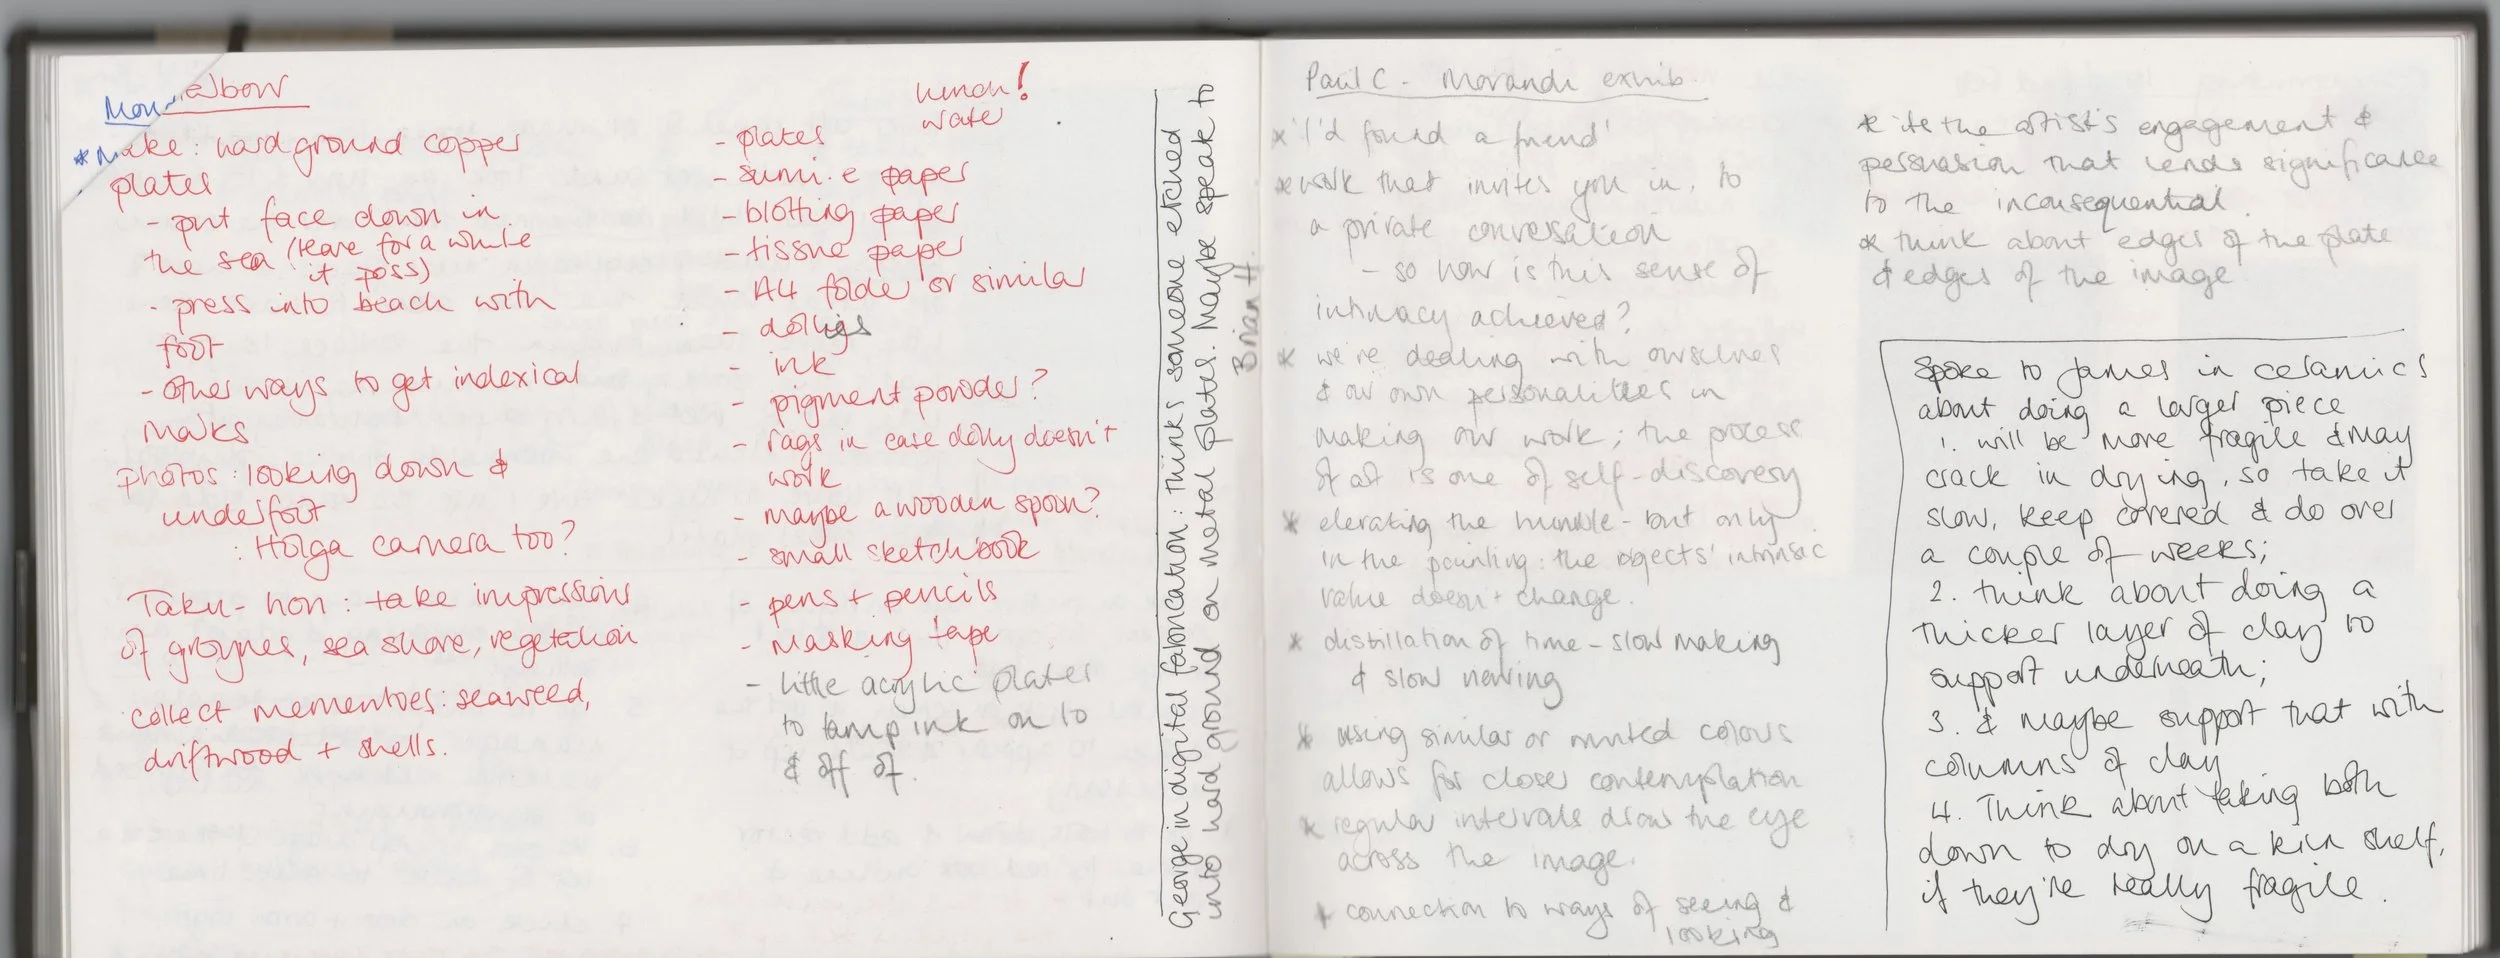 elbow
Mon
* Make: hard ground copper
plates
- put face down in
the sea (leave for a while
if poss)
- press into beach with
foot
- other ways to get indexical
marks
photos: looking down &
underfoot
: Holga camera too?
Taku-hon: take impressions
of groynes, sea shore, vegetation
collect mementoes: seaweed,
driftwood + shells.
lunch!
water
- plates
- sumi.e paper
- blotting paper
- tissue paper
- A4 folder or similar
- dollies
- ink
- pigment powder?
- rags in case dolly doesn't
work
- maybe a wooden spoon?
- small sketchbook
- pens + pencils
- masking tape
- little acrylic plates
to tamp ink on to
& off of.
George in digital fabrication: thinks someone etched
into hard ground on metal plates. Maybe speak to
Brian H.
Paul C - Morandi exhib.
* 'I'd found a friend'
* work that invites you in, to
a private conversation
- so how is this sense of
intimacy achieved?
* we're dealing with ourselves
& our own personalities in
making our work; the process
of art is one of self-discovery
* elevating the humble - but only
in the painting: the objects' intrinsic
value doesn't change.
* distillation of time - slow making
& slow viewing
* using similar or muted colours
allows for closer contemplation
* regular intervals draw the eye
across the image.
* connection to ways of seeing &
looking
* it's the artist's engagement &
persuasion that lends significance
to the inconsequential.
* think about edges of the plate
& edges of the image
Spoke to James in ceramics
about doing a larger piece
1. will be more fragile & may
crack in drying, so take it
slow, keep covered & do over
a couple of weeks;
2. think about doing a
thicker layer of clay to
support underneath;
3. & maybe support that with
columns of clay
4. Think about taking both
down to dry on a kiln shelf,
if they're really fragile.